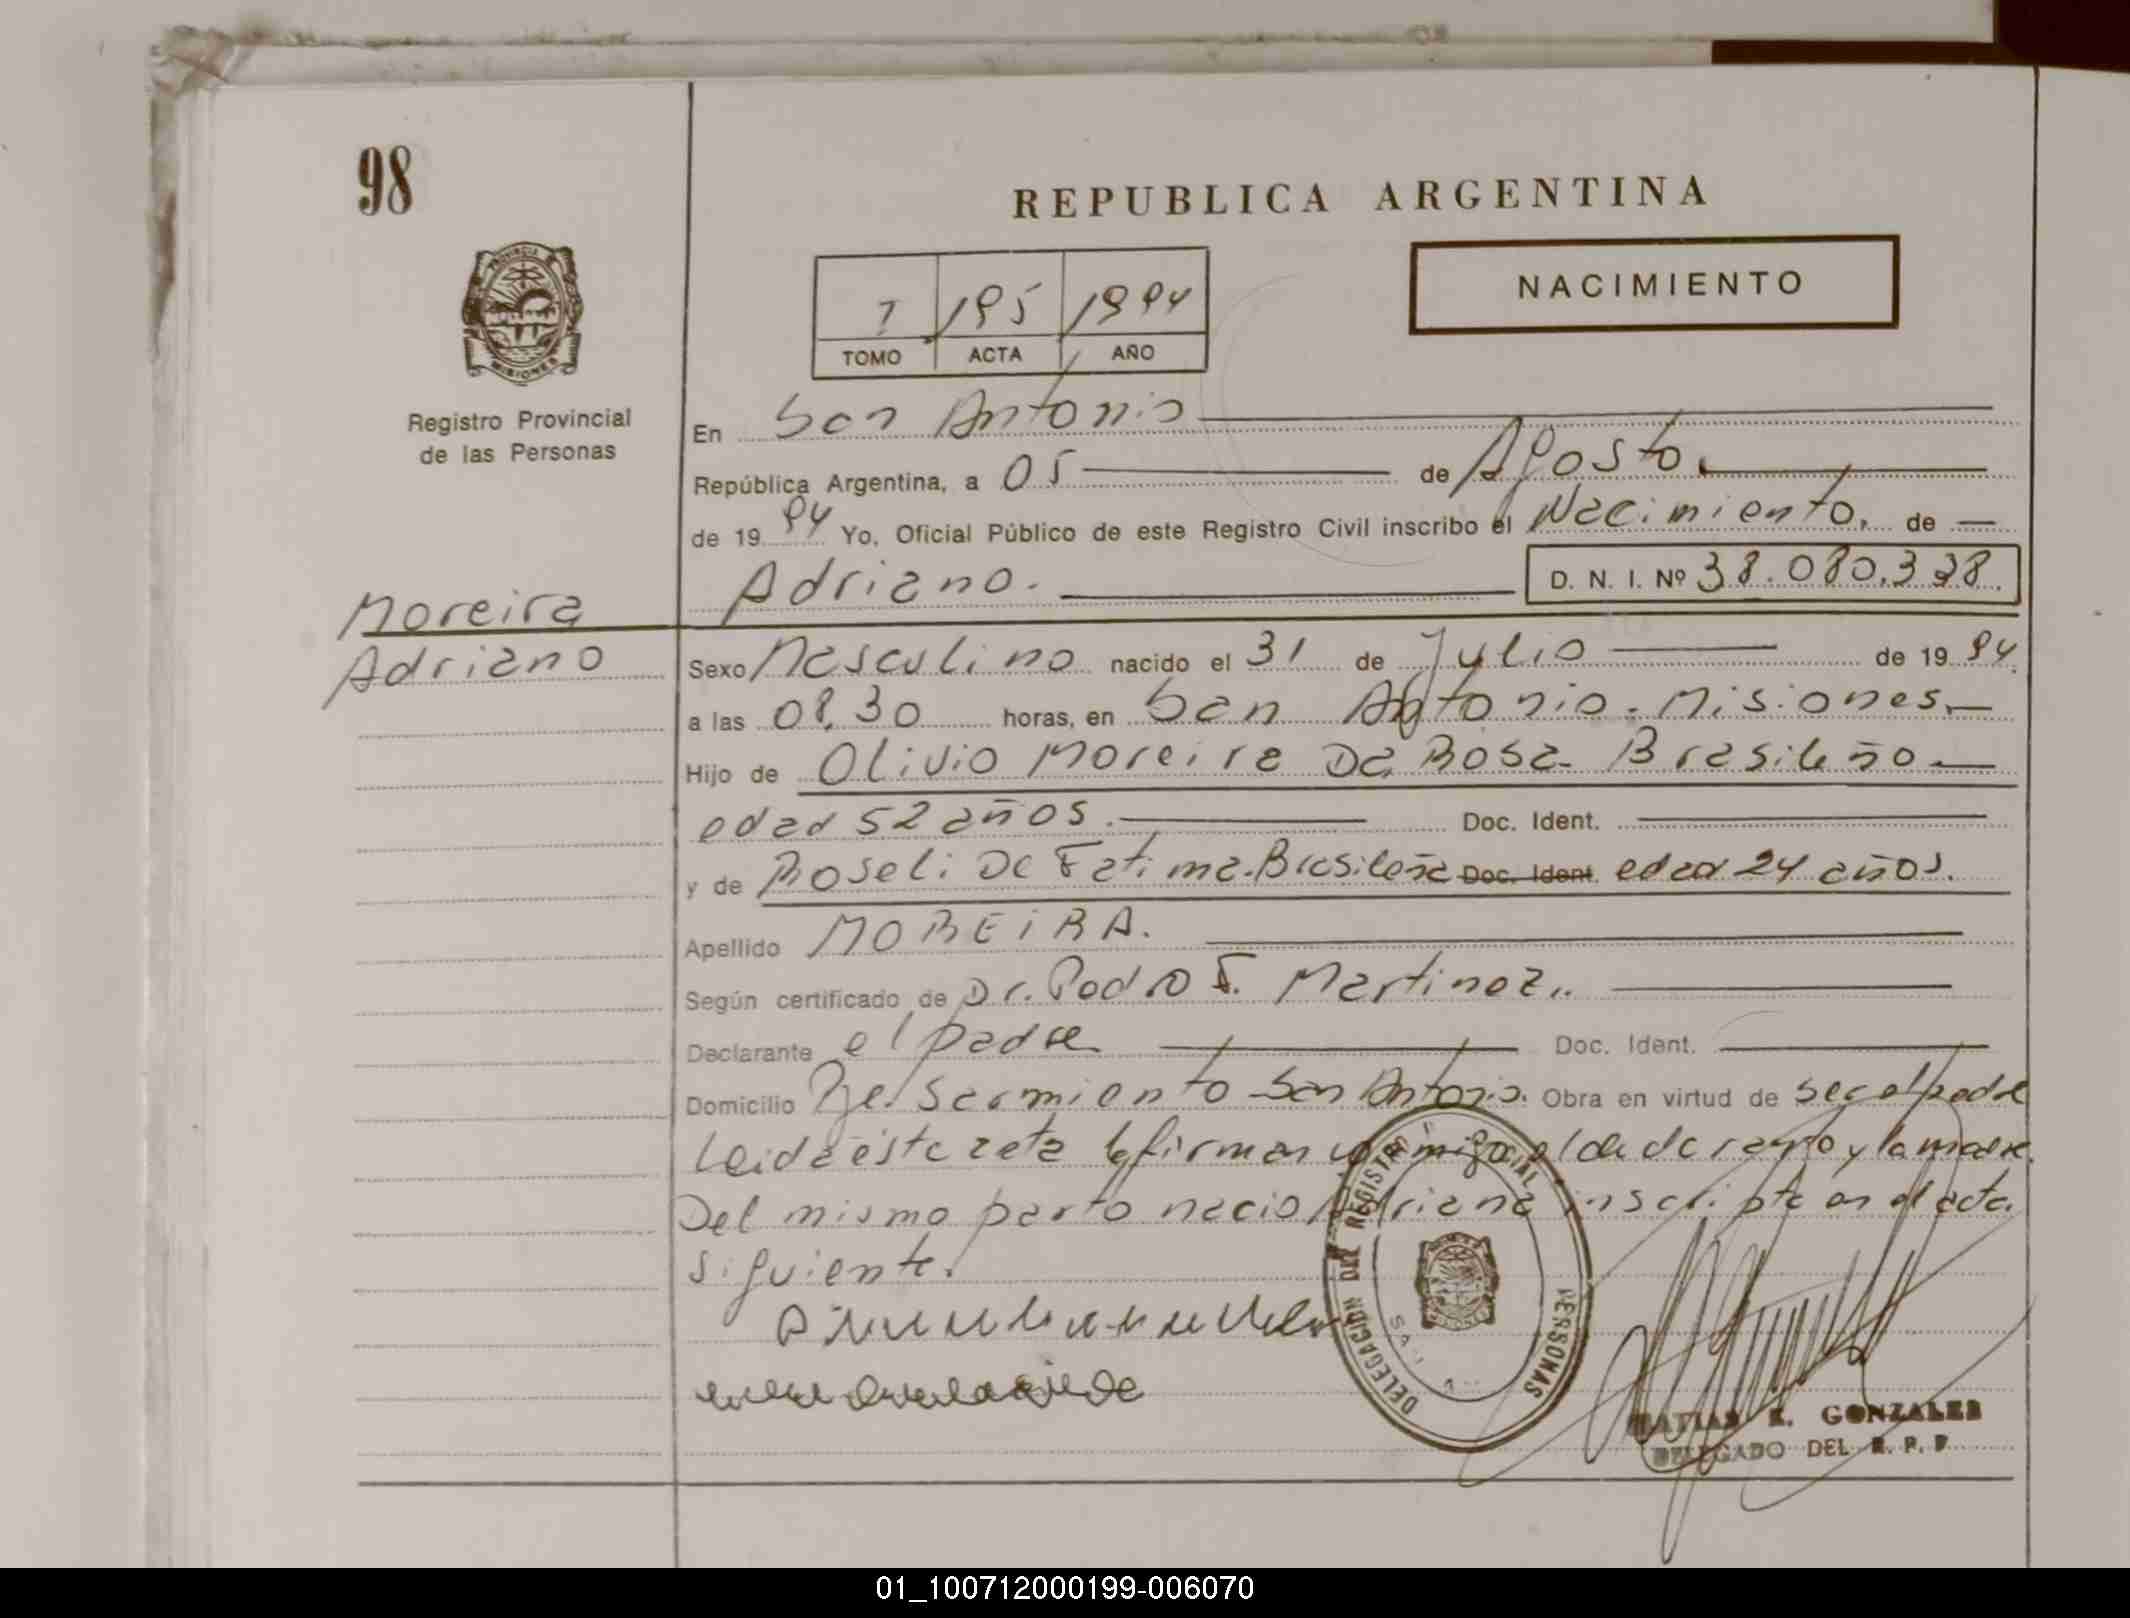 98
REPUBLICA ARGENTINA
NACIMIENTO
PROVINCIA DE
MISIONES
Registro Provincial
de las Personas
1 195 1994
TOMO ACTA AÑO
En San Antonio
República Argentina, a 05 de Agosto.
de 19 94 Yo, Oficial Público de este Registro Civil inscribo el Nacimiento. de
Adriano. D. N. I. Nº 38.080.338.
Moreira
Adriano
Sexo Masculino nacido el 31 de Julio de 19 94.
a las 08.30 horas, en San Antonio. Misiones.
Hijo de Olivio Moreira Da Rosa. Brasileño
edad 52 años. Doc. Ident.
y de Roseli De Fatima. Brasileña Doc. Ident. edad 24 años.
Apellido MOREIRA.
Según certificado de Dr. Pedro F. Martinez..
Declarante el padre Doc. Ident.
Domicilio Sarmiento San Antonio. Obra en virtud de ser el padre
Leida este acta la firman conmigo el declarante y la madre.
Del mismo parto nacio Adriana inscripta en el acta
siguiente.
DELEGACION DEL REGISTRO PROVINCIAL PERSONAS
SAN
MATIAS E. GONZALEZ
DELEGADO DEL R. P. P
01_100712000199-006070